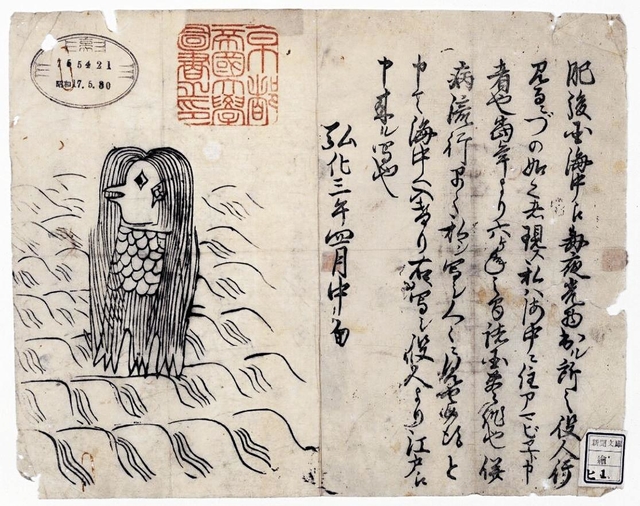 肥後国海中え毎夜光物出ル所之役人行
見るニづの如之者現ス私ハ海中ニ住アマビヱト申
者也當年より六ヶ年之間諸国豊作也併
病流行早々私ヲ写シ人々ニ見セ候得と
申て海中へ入けり右写シ役人より江戸え
申来ル写也
弘化三年四月中旬
京都
帝國大學
圖書之印
165421
昭和17.5.30
新聞文庫
繪
ヒ 1